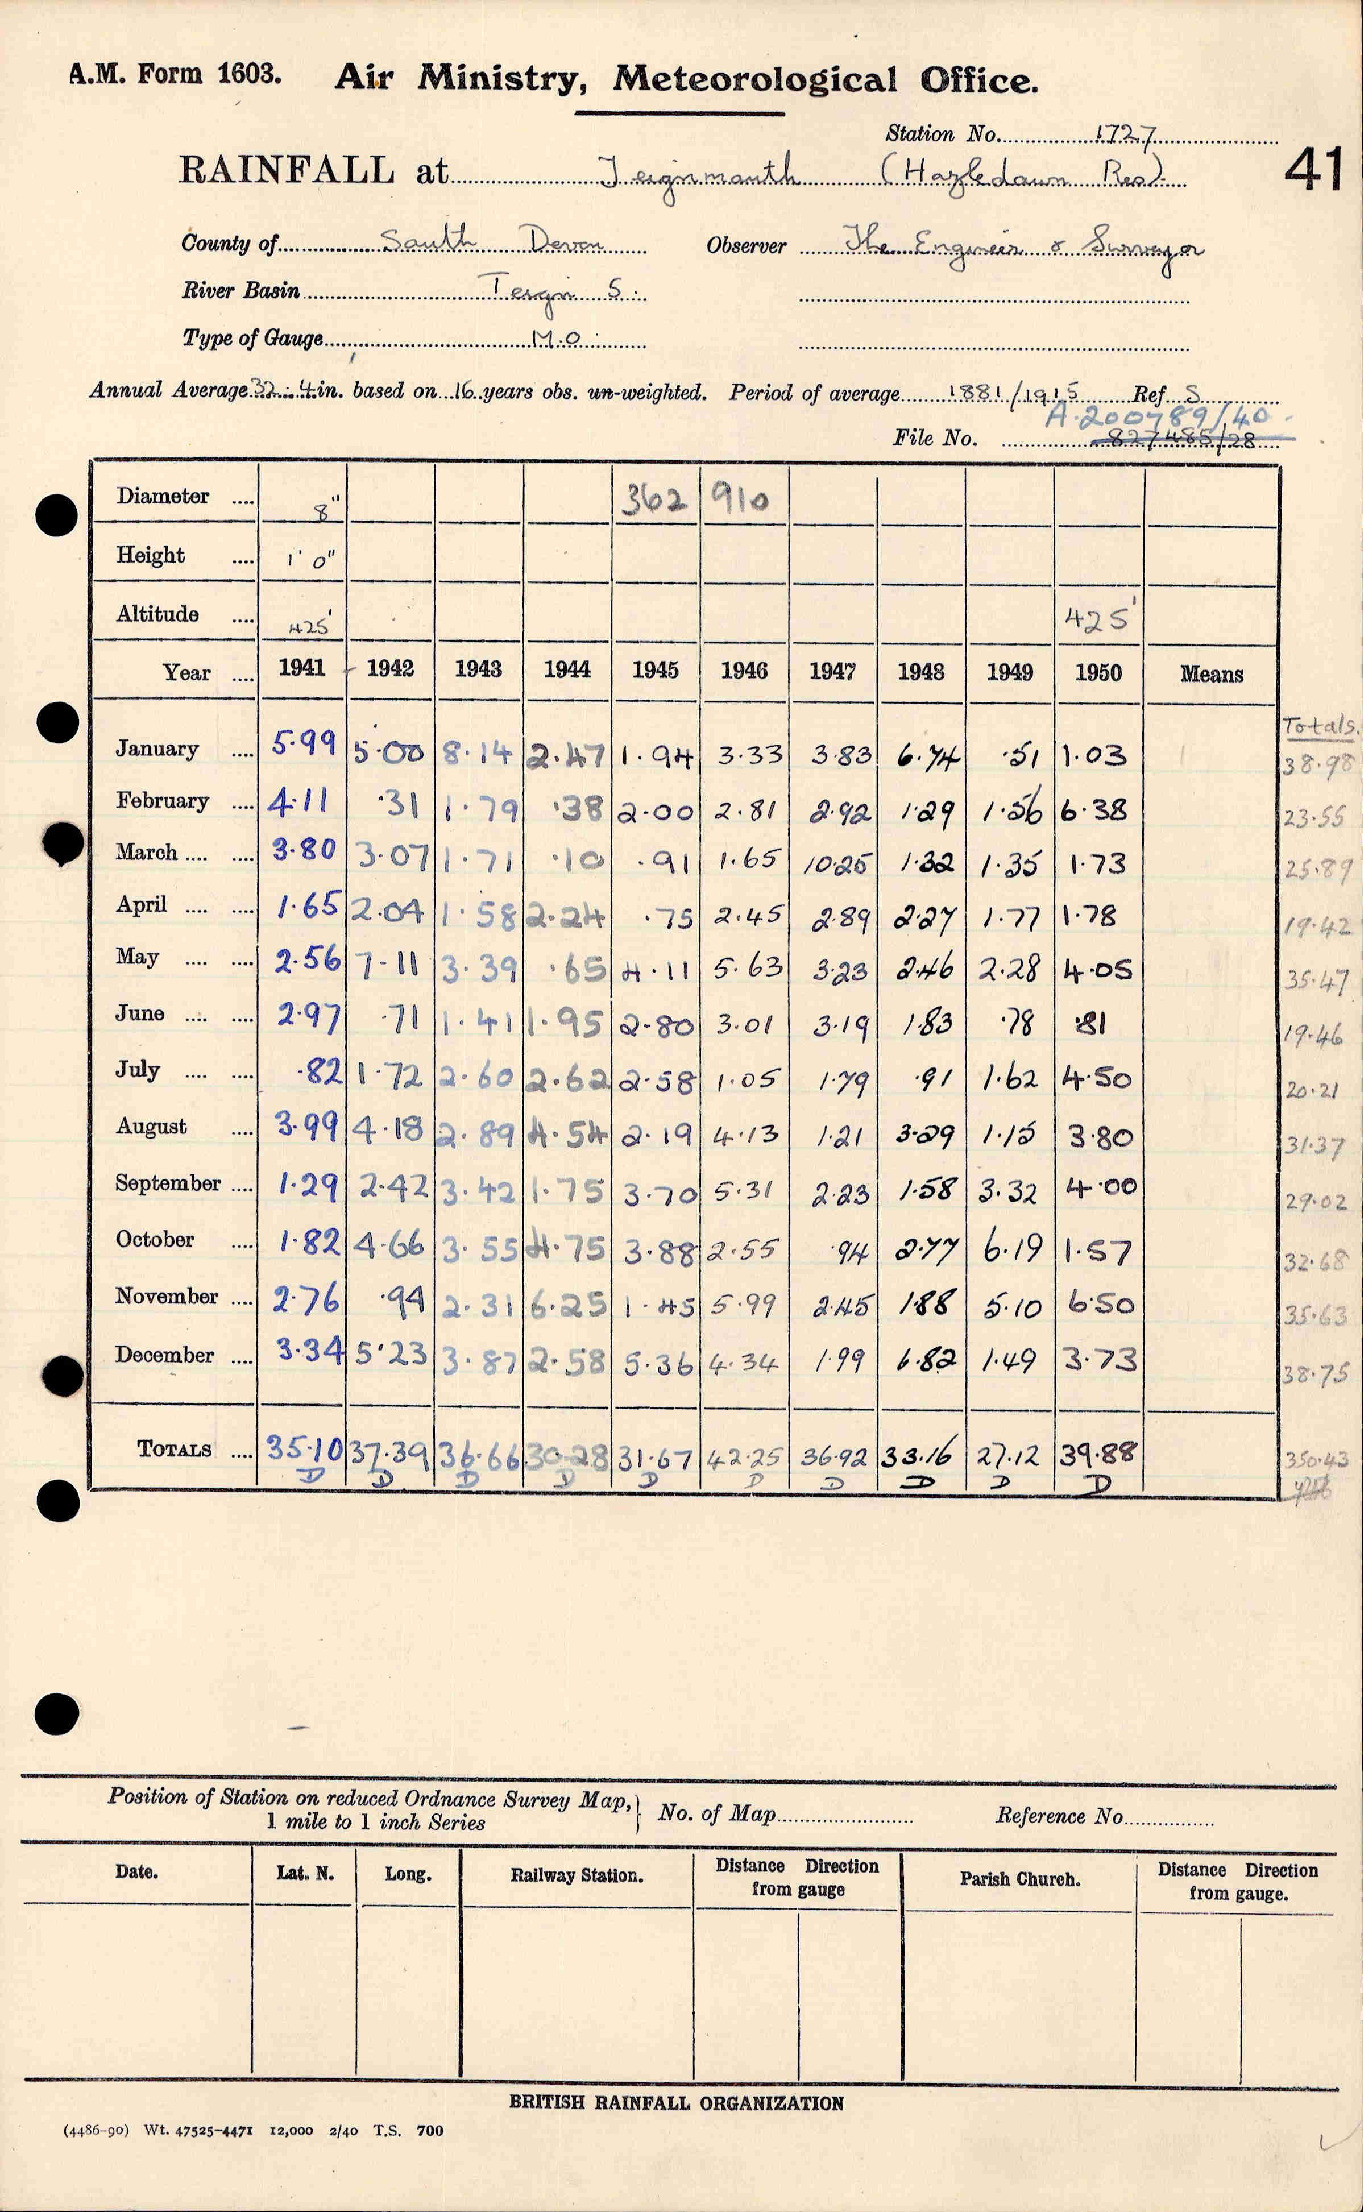 A.M. Form 1603. Air Ministry, Meteorological Office.
Station No. 1727
41
RAINFALL at Teignmouth (Hazledown Res).
County of South Devon Observer The Engineer & Surveyor
River Basin Teign S.
Type of Gauge M.O.
Annual Average 32.4 in. based on 16 years obs. un-weighted. Period of average 1881/1915 Ref S
A.200789/40.
File No. 827485/28
Diameter .... 8" 362 910
Height .... 1' 0"
Altitude .... 425' 425'
Year .... 1941 1942 1943 1944 1945 1946 1947 1948 1949 1950 Means
Totals.
January .... 5.99 5.00 8.14 2.47 1.94 3.33 3.83 6.74 .51 1.03 38.98
February .... 4.11 .31 1.79 .38 2.00 2.81 2.92 1.29 1.56 6.38 23.55
March .... .... 3.80 3.07 1.71 .10 .91 1.65 10.25 1.32 1.35 1.73 25.89
April .... .... 1.65 2.04 1.58 2.24 .75 2.45 2.89 2.27 1.77 1.78 19.42
May .... .... 2.56 7.11 3.39 .65 4.11 5.63 3.23 2.46 2.28 4.05 35.47
June .... .... 2.97 .71 1.41 1.95 2.80 3.01 3.19 1.83 .78 .81 19.46
July .... .... .82 1.72 2.60 2.62 2.58 1.05 1.79 .91 1.62 4.50 20.21
August .... 3.99 4.18 2.89 4.54 2.19 4.13 1.21 3.29 1.15 3.80 31.37
September .... 1.29 2.42 3.42 1.75 3.70 5.31 2.23 1.58 3.32 4.00 29.02
October .... 1.82 4.66 3.55 4.75 3.88 2.55 .94 2.77 6.19 1.57 32.68
November .... 2.76 .94 2.31 6.25 1.45 5.99 2.45 1.88 5.10 6.50 35.63
December .... 3.34 5.23 3.87 2.58 5.36 4.34 1.99 6.82 1.49 3.73 38.75
TOTALS .... 35.10 37.39 36.66 30.28 31.67 42.25 36.92 33.16 27.12 39.88 350.43
D D D D D D D D D D
Position of Station on reduced Ordnance Survey Map,
1 mile to 1 inch Series
No. of Map Reference No.
Date. Lat. N. Long. Railway Station. Distance Direction from gauge Parish Church. Distance Direction from gauge.
BRITISH RAINFALL ORGANIZATION
(4486-90) Wt. 47525-4471 12,000 2/40 T.S. 700